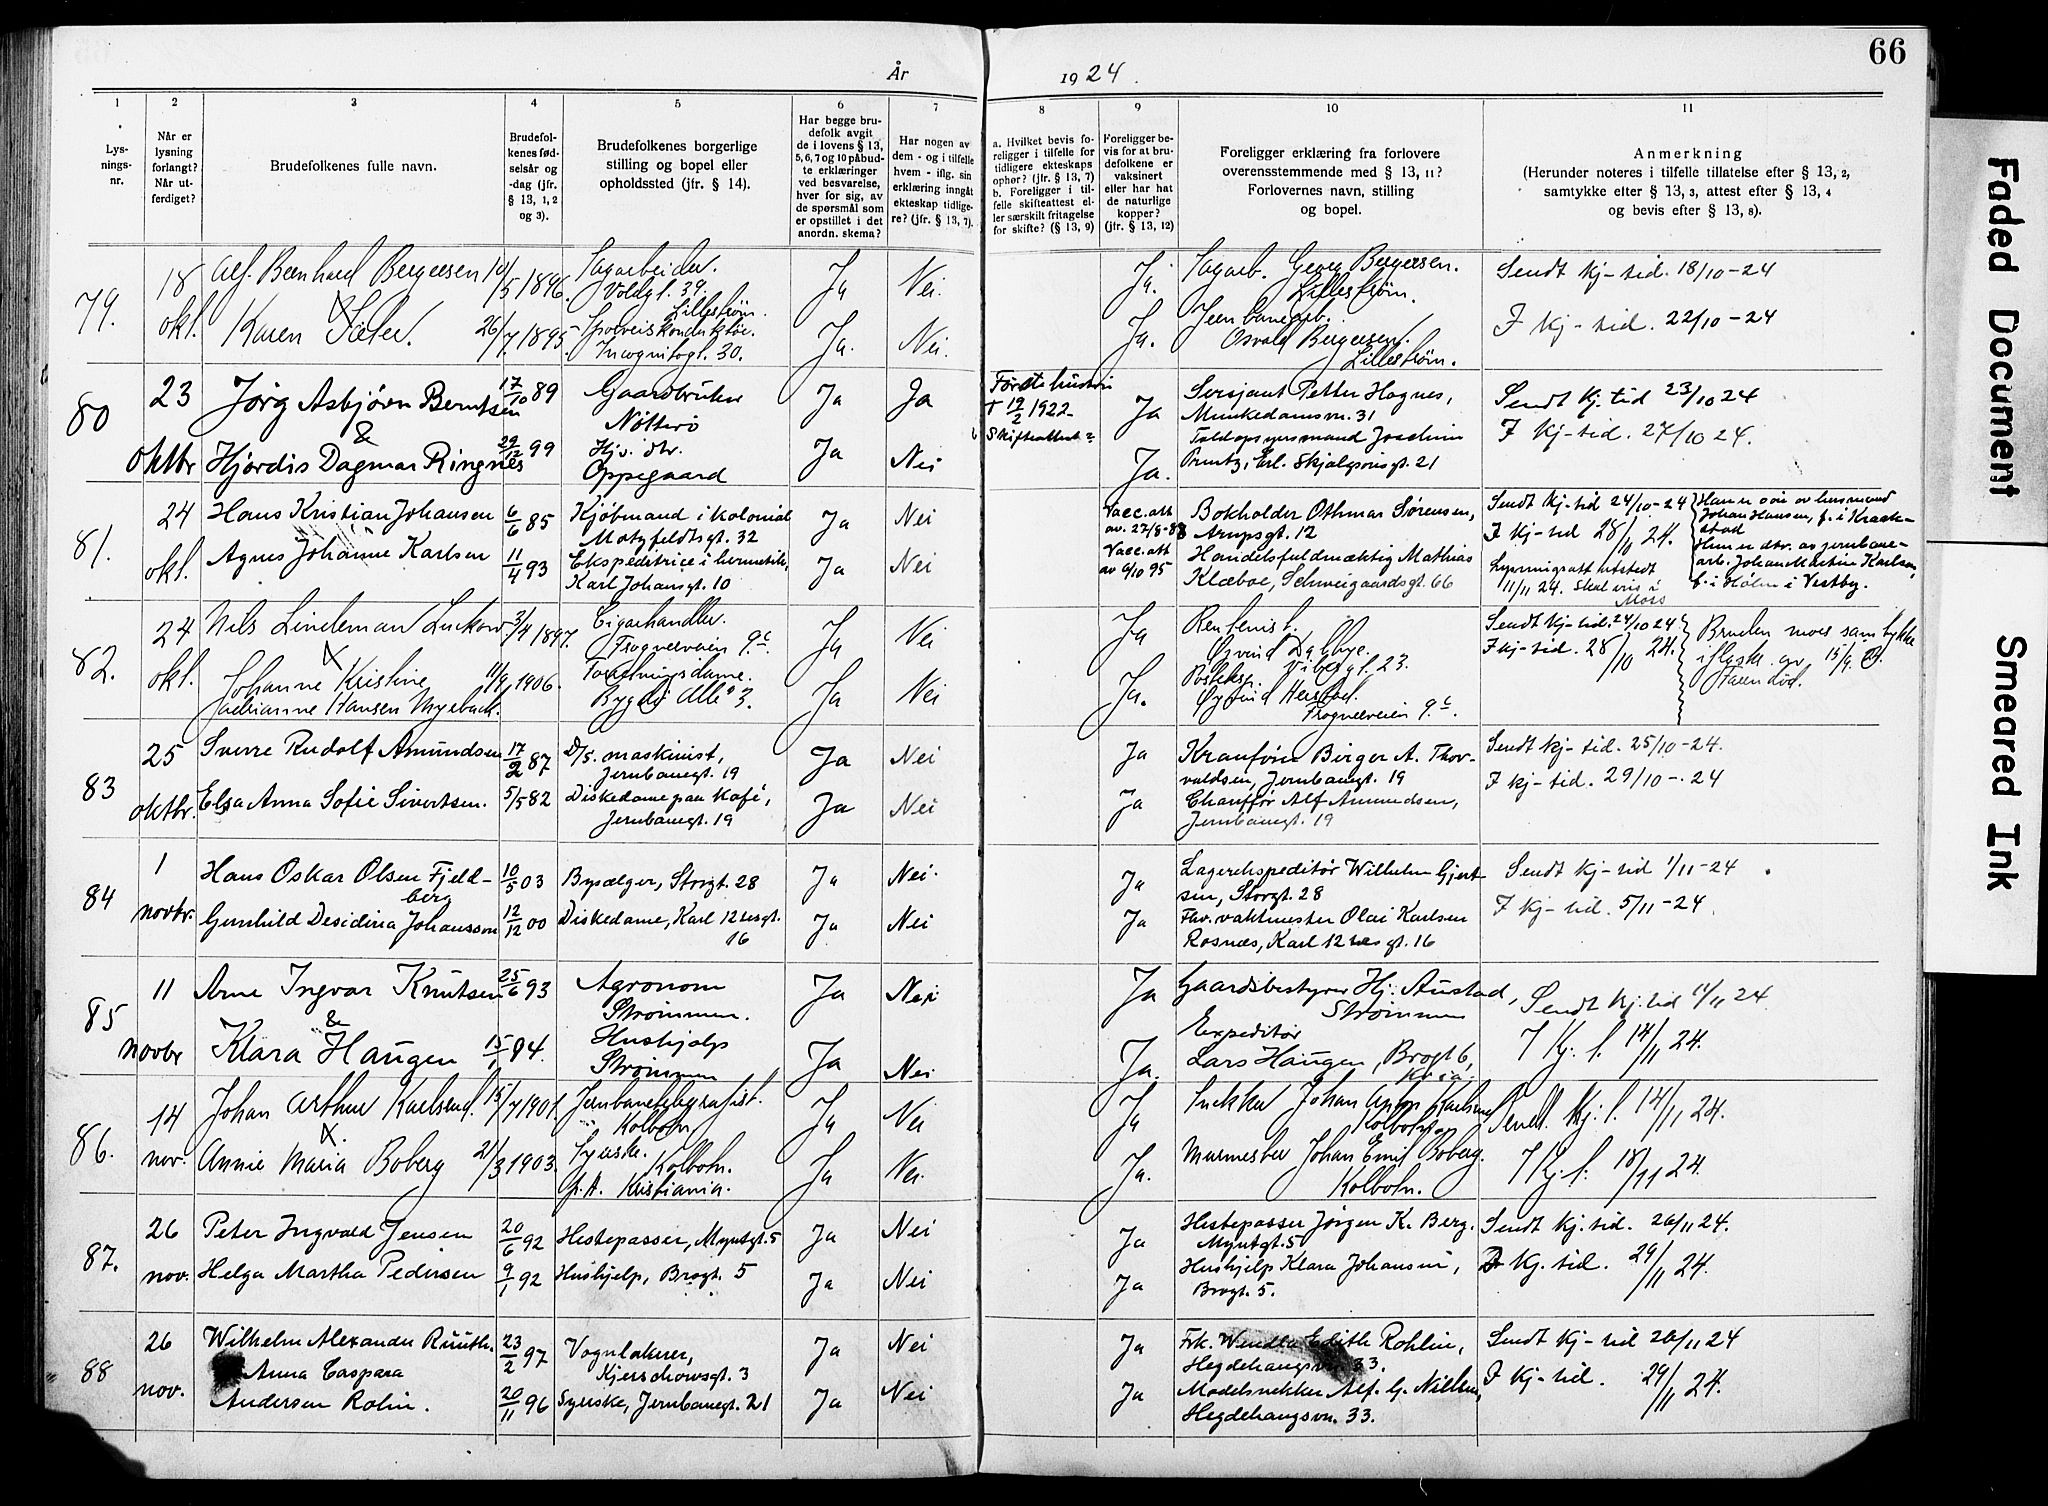 66
År 1924.
1 2 3 4 5 6 7 8 9 10 11
Lys-
nings-
nr.
Når er
lysning
forlangt?
Når ut-
ferdiget?
Brudefolkenes fulle navn.
Brudefol-
kenes fød-
selsår og
-dag (jfr.
§ 13, 1, 2
og 3).
Brudefolkenes borgerlige
stilling og bopel eller
opholdssted (jfr. § 14).
Har begge bru-
defolk avgit
de i lovens § 13,
5, 6, 7 og 10 påbud-
te erklæringer
ved besvarelse,
hver for sig, av
de spørsmål som
er opstillet i det
anordn. skema?
Har nogen av
dem - og i tilfelle
hvem - iflg. sin
erklæring inngåt
ekteskap tidlige-
re? (jfr. § 13, 7).
a. Hvilket bevis fo-
religger i tilfelle for
tidligere ekteskaps
ophør? (jfr. § 13, 7)
b. Foreligger i til-
felle skifteattest el-
ler særskilt fritagelse
for skifte? (§ 13, 9)
Foreligger be-
vis for at bru-
defolkene er
vaksinert
eller har hat
de naturlige
kopper?
(jfr. § 13, 12)
Foreligger erklæring fra forlovere
overensstemmende med § 13, 11?
Forlovernes navn, stilling
og bopel.
Anmerkning
(Herunder noteres i tilfelle tillatelse efter § 13, 2,
samtykke efter § 13, 3, attest efter § 13, 4
og bevis efter § 13, 8).
79.
18 okt.
Alf. Bernhard Bergersen 10/5 1896.
Sagarbeider.
Voldgt. 39.
Lillestrøm.
Ja Nei.
Ja. Sagarb. Georg Bergersen.
Lillestrøm.
Sendt kj-tid. 18/10-24
Karen Sæter. 26/7 1895
Sporveiskonduktør.
Incognitogt. 30.
Ja. Nei.
Ja. Jernbanearb.
Osvald Bergersen.
Lillestrøm.
I kj-tid. 22/10-24
80
23 oktbr
Jörg Asbjörn Berntsen 17/10 89
&
Gaardbruker
Nötterö
Ja Ja
Förste hustru
† 19/2 1922
Skifteattest
Ja Sersjant Petter Hognes,
Munkedamsvn. 31
Sendt kj-tid 23/10 24
Hjördis Dagmar Ringnes 29/12 99
Hj.v. dtr.
Oppegaard
Ja Nei
Ja. Toldopsynsmand Joachim
Pruntz, Erl. Skjalgsønsgt. 21
I kj-tid. 27/10 24.
81.
24 okt.
Hans Kristian Johansen 6/6 85
Kjöbmand i kolonial
Motzfeldtsgt. 32
Ja Nei
Vacc. att
av. 27/8-88
Bokholder Othmar Sørensen,
Arupsgt. 12
Sendt kj-tid 24/10-24
I kj-tid 28/10 24.
Agnes Johanne Karlsen 11/4 93
Ekspeditrice i hermetikk,
Karl Johansgt. 10
Ja Nei
Vacc. att
av 6/10 95
Handelsfuldmæktig Mathias
Klæboe, Schweigaardsgt. 66
Lysningsatt utstedt
11/11 24. Skal vies i
Moss
Han er søn av husmand
Johan Hansen, f. i Kraak-
stad
Hun er dtr. av jernbane-
arb. Johan Martin Karlsen,
f. i Hølen i Vestby.
82.
24 okt.
Nils Lindeman Luckow 3/4 1897.
Cigarhandler.
Frognerveien 9c.
Ja Nei
Ja
Øivind Dahbye.
Vibesgt. 23.
Sendt kj-tid. 24/10 24
I kj-tid. 28/10 24.
Johanne Kristine 11/9 1906.
Jadrianne Hansen
Forretningsdame.
Bygdö Allé 3.
Ja Nei
Ja.
Øyvind
Frognerveien 9c.
Bruden mors samtykke
i flg. sk. av 15/9.
Faren død.
83
25 oktbr.
Sverre Rudolf Amundsen 17/2 87
D/s. maskinist,
Jernbanegt. 19
Ja Nei
Ja Kranfører Birger A. Thor-
valdsen, Jernbanegt. 19
Sendt kj-tid. 25/10-24.
Elsa Anna Sofie Sivertsen. 5/5 82
Diskedame paa kafé,
Jernbanegt. 19
Ja Nei
Ja Chauffør Alf Amundsen,
Jernbanegt. 19
I kj-tid. 29/10-.24
84
1 novbr.
Hans Oskar Olsen Fjeld-
berg 10/5 03
Bysælger, Storgt. 28
Ja Nei.
Ja Lagerekspeditør Wilhelm Gjert-
sen, Storgt. 28
Sendt kj-tid 1/11-24
Gunhild Desideria Johansson 12/12 00
Diskedame, Karl 12tesgt.
16
Ja Nei
Ja Hav. vaktmester Olai Karlsen
Rosnæs, Karl 12tes gt. 16
I kj-tid. 5/11-24.
85
11 novbr
Arne Ingvar Knutsen 25/6 93
&
Agronom
Strömmen.
Ja Nei
Ja Gaardsbestyrer Hj. Austad,
Strömmen
Sendt kj.tid 11/11 24.
Klara Haugen 15/1 94.
Hushjelp
Strömmen
Ja Nei
Ja. Expeditör
Lars Haugen, Brogt 6,
Kr.ia.
I Kj. t. 14/11 24.
86.
14 nov.
Johan Arthur Karlsen. 15/7 1901.
Jernbanetelegrafist.
Kolbotn
Ja Nei
Ja Snekker Johan Karlsen
Kolbotn
Sendt. Kj. t. 14/11 24.
Annie Maria Boberg 21/3 1903.
Syerske. Kolbotn.
p.t. Kristiania.
Ja Nei.
Ja. Murmester Johan Emil Boberg.
Kolbotn.
I Kj. t. 18/11 24.
87.
26 nov.
Peter Ingvald Jensen 20/6 92
Hestepasser, Myntgt. 5
Ja Nei
Ja Hestepasser Jörgen K. Berg.
Myntgt. 5
Sendt kj.tid. 26/11 24.
Helga Martha Pedersen 9/1 92
Hushjelp, Brogt. 5
Ja Nei
Ja Hushjelp Klara Johansen,
Brogt. 5.
I kj. tid. 29/11 24.
88
26 nov.
Wilhelm Alexander Ruuth. 23/2 97
Vognlakerer,
Kjerschowsgt. 3
Ja Nei
Ja Frk. Wendla Edith Rohlin,
Hegdehaugsvn. 33.
Sendt kj-tid 26/11 24
Anna Caspara
Andersen Rolin. 20/11 96
Syerske, Jernbanegt. 21
Ja Nei
Ja Modelsnekker Alf. G. Nilsen,
Hegdehaugsvn. 33.
I kj-tid. 29/11 24.
Faded Document
Smeared Ink